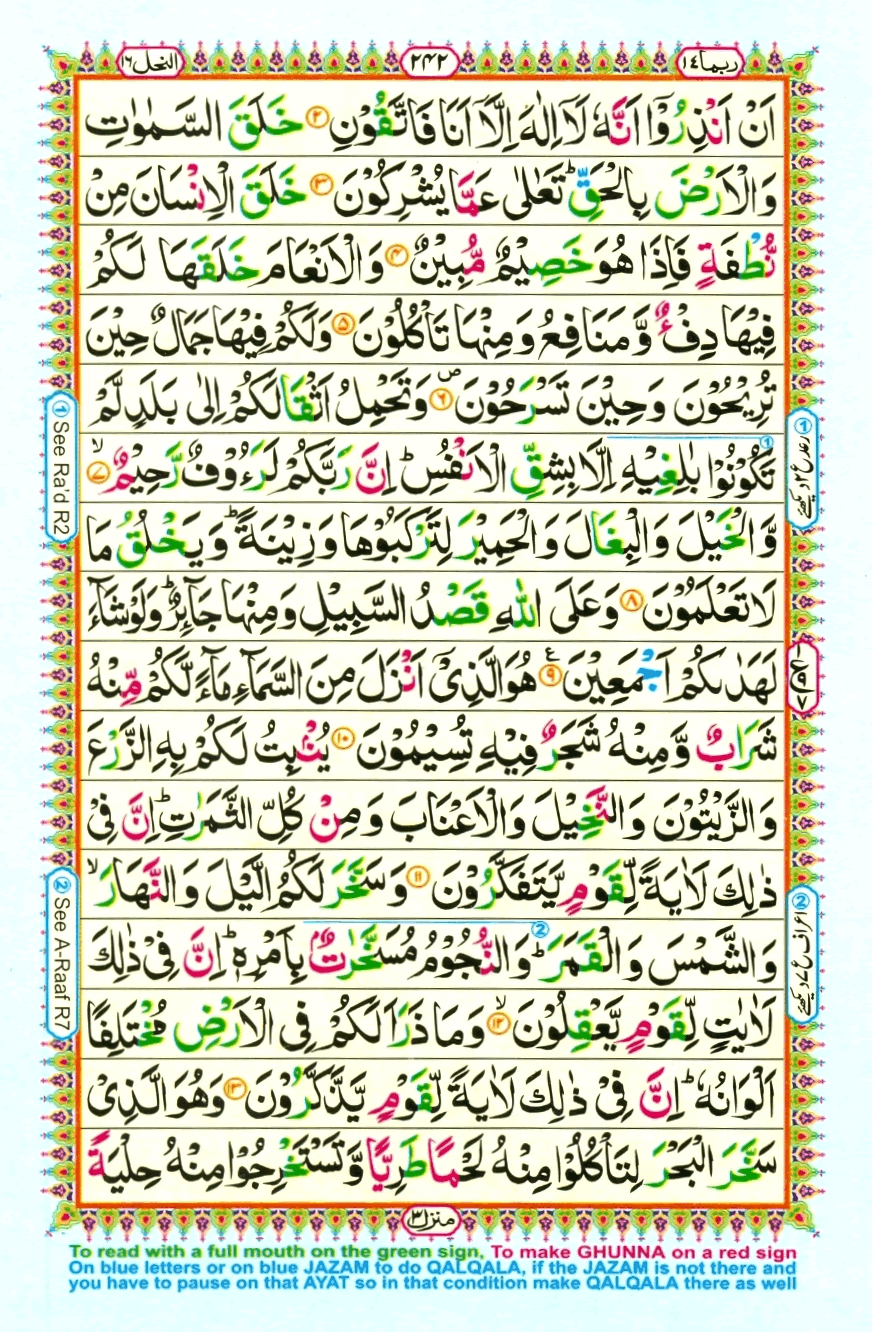 النحل ١٦
٢٤٢
ربما ١٤
اَنْ اَنْذِرُوْۤا اَنَّهٗ لَاۤ اِلٰهَ اِلَّاۤ اَنَا فَاتَّقُوْنِ ۝٢ خَلَقَ السَّمٰوٰتِ
وَالْاَرْضَ بِالْحَقِّ ؕ تَعٰلٰى عَمَّا يُشْرِكُوْنَ ۝٣ خَلَقَ الْاِنْسَانَ مِنْ
نُّطْفَةٍ فَاِذَا هُوَ خَصِيْمٌ مُّبِيْنٌ ۝٤ وَالْاَنْعَامَ خَلَقَهَا لَكُمْ
فِيْهَا دِفْءٌ وَّمَنَافِعُ وَمِنْهَا تَاْكُلُوْنَ ۝٥ وَلَكُمْ فِيْهَا جَمَالٌ حِيْنَ
تُرِيْحُوْنَ وَحِيْنَ تَسْرَحُوْنَ ۝٦ وَتَحْمِلُ اَثْقَالَكُمْ اِلٰى بَلَدٍ لَّمْ
تَكُوْنُوْا بٰلِغِيْهِ اِلَّا بِشِقِّ الْاَنْفُسِ ؕ اِنَّ رَبَّكُمْ لَرَءُوْفٌ رَّحِيْمٌ ۝٧
وَّالْخَيْلَ وَالْبِغَالَ وَالْحَمِيْرَ لِتَرْكَبُوْهَا وَزِيْنَةً ؕ وَيَخْلُقُ مَا
لَا تَعْلَمُوْنَ ۝٨ وَعَلَى اللّٰهِ قَصْدُ السَّبِيْلِ وَمِنْهَا جَآئِرٌ ؕ وَلَوْ شَآءَ
لَهَدٰىكُمْ اَجْمَعِيْنَ ۝٩ هُوَ الَّذِيْۤ اَنْزَلَ مِنَ السَّمَآءِ مَآءً لَّكُمْ مِّنْهُ
شَرَابٌ وَّمِنْهُ شَجَرٌ فِيْهِ تُسِيْمُوْنَ ۝١٠ يُنْۢبِتُ لَكُمْ بِهِ الزَّرْعَ
وَالزَّيْتُوْنَ وَالنَّخِيْلَ وَالْاَعْنَابَ وَمِنْ كُلِّ الثَّمَرٰتِ ؕ اِنَّ فِيْ
ذٰلِكَ لَاٰيَةً لِّقَوْمٍ يَّتَفَكَّرُوْنَ ۝١١ وَسَخَّرَ لَكُمُ الَّيْلَ وَالنَّهَارَ ۙ
وَالشَّمْسَ وَالْقَمَرَ ؕ وَالنُّجُوْمُ مُسَخَّرٰتٌۢ بِاَمْرِهٖ ؕ اِنَّ فِيْ ذٰلِكَ
لَاٰيٰتٍ لِّقَوْمٍ يَّعْقِلُوْنَ ۝١٢ وَمَا ذَرَاَ لَكُمْ فِى الْاَرْضِ مُخْتَلِفًا
اَلْوَانُهٗ ؕ اِنَّ فِيْ ذٰلِكَ لَاٰيَةً لِّقَوْمٍ يَّذَّكَّرُوْنَ ۝١٣ وَهُوَ الَّذِيْ
سَخَّرَ الْبَحْرَ لِتَاْكُلُوْا مِنْهُ لَحْمًا طَرِيًّا وَّتَسْتَخْرِجُوْا مِنْهُ حِلْيَةً
① See Ra'd R2
② See A-Raaf R7
① رعد ع ٢ دیکھئے
② اعراف ع ٧ دیکھئے
منزل ٣
To read with a full mouth on the green sign, To make GHUNNA on a red sign
On blue letters or on blue JAZAM to do QALQALA, if the JAZAM is not there and
you have to pause on that AYAT so in that condition make QALQALA there as well